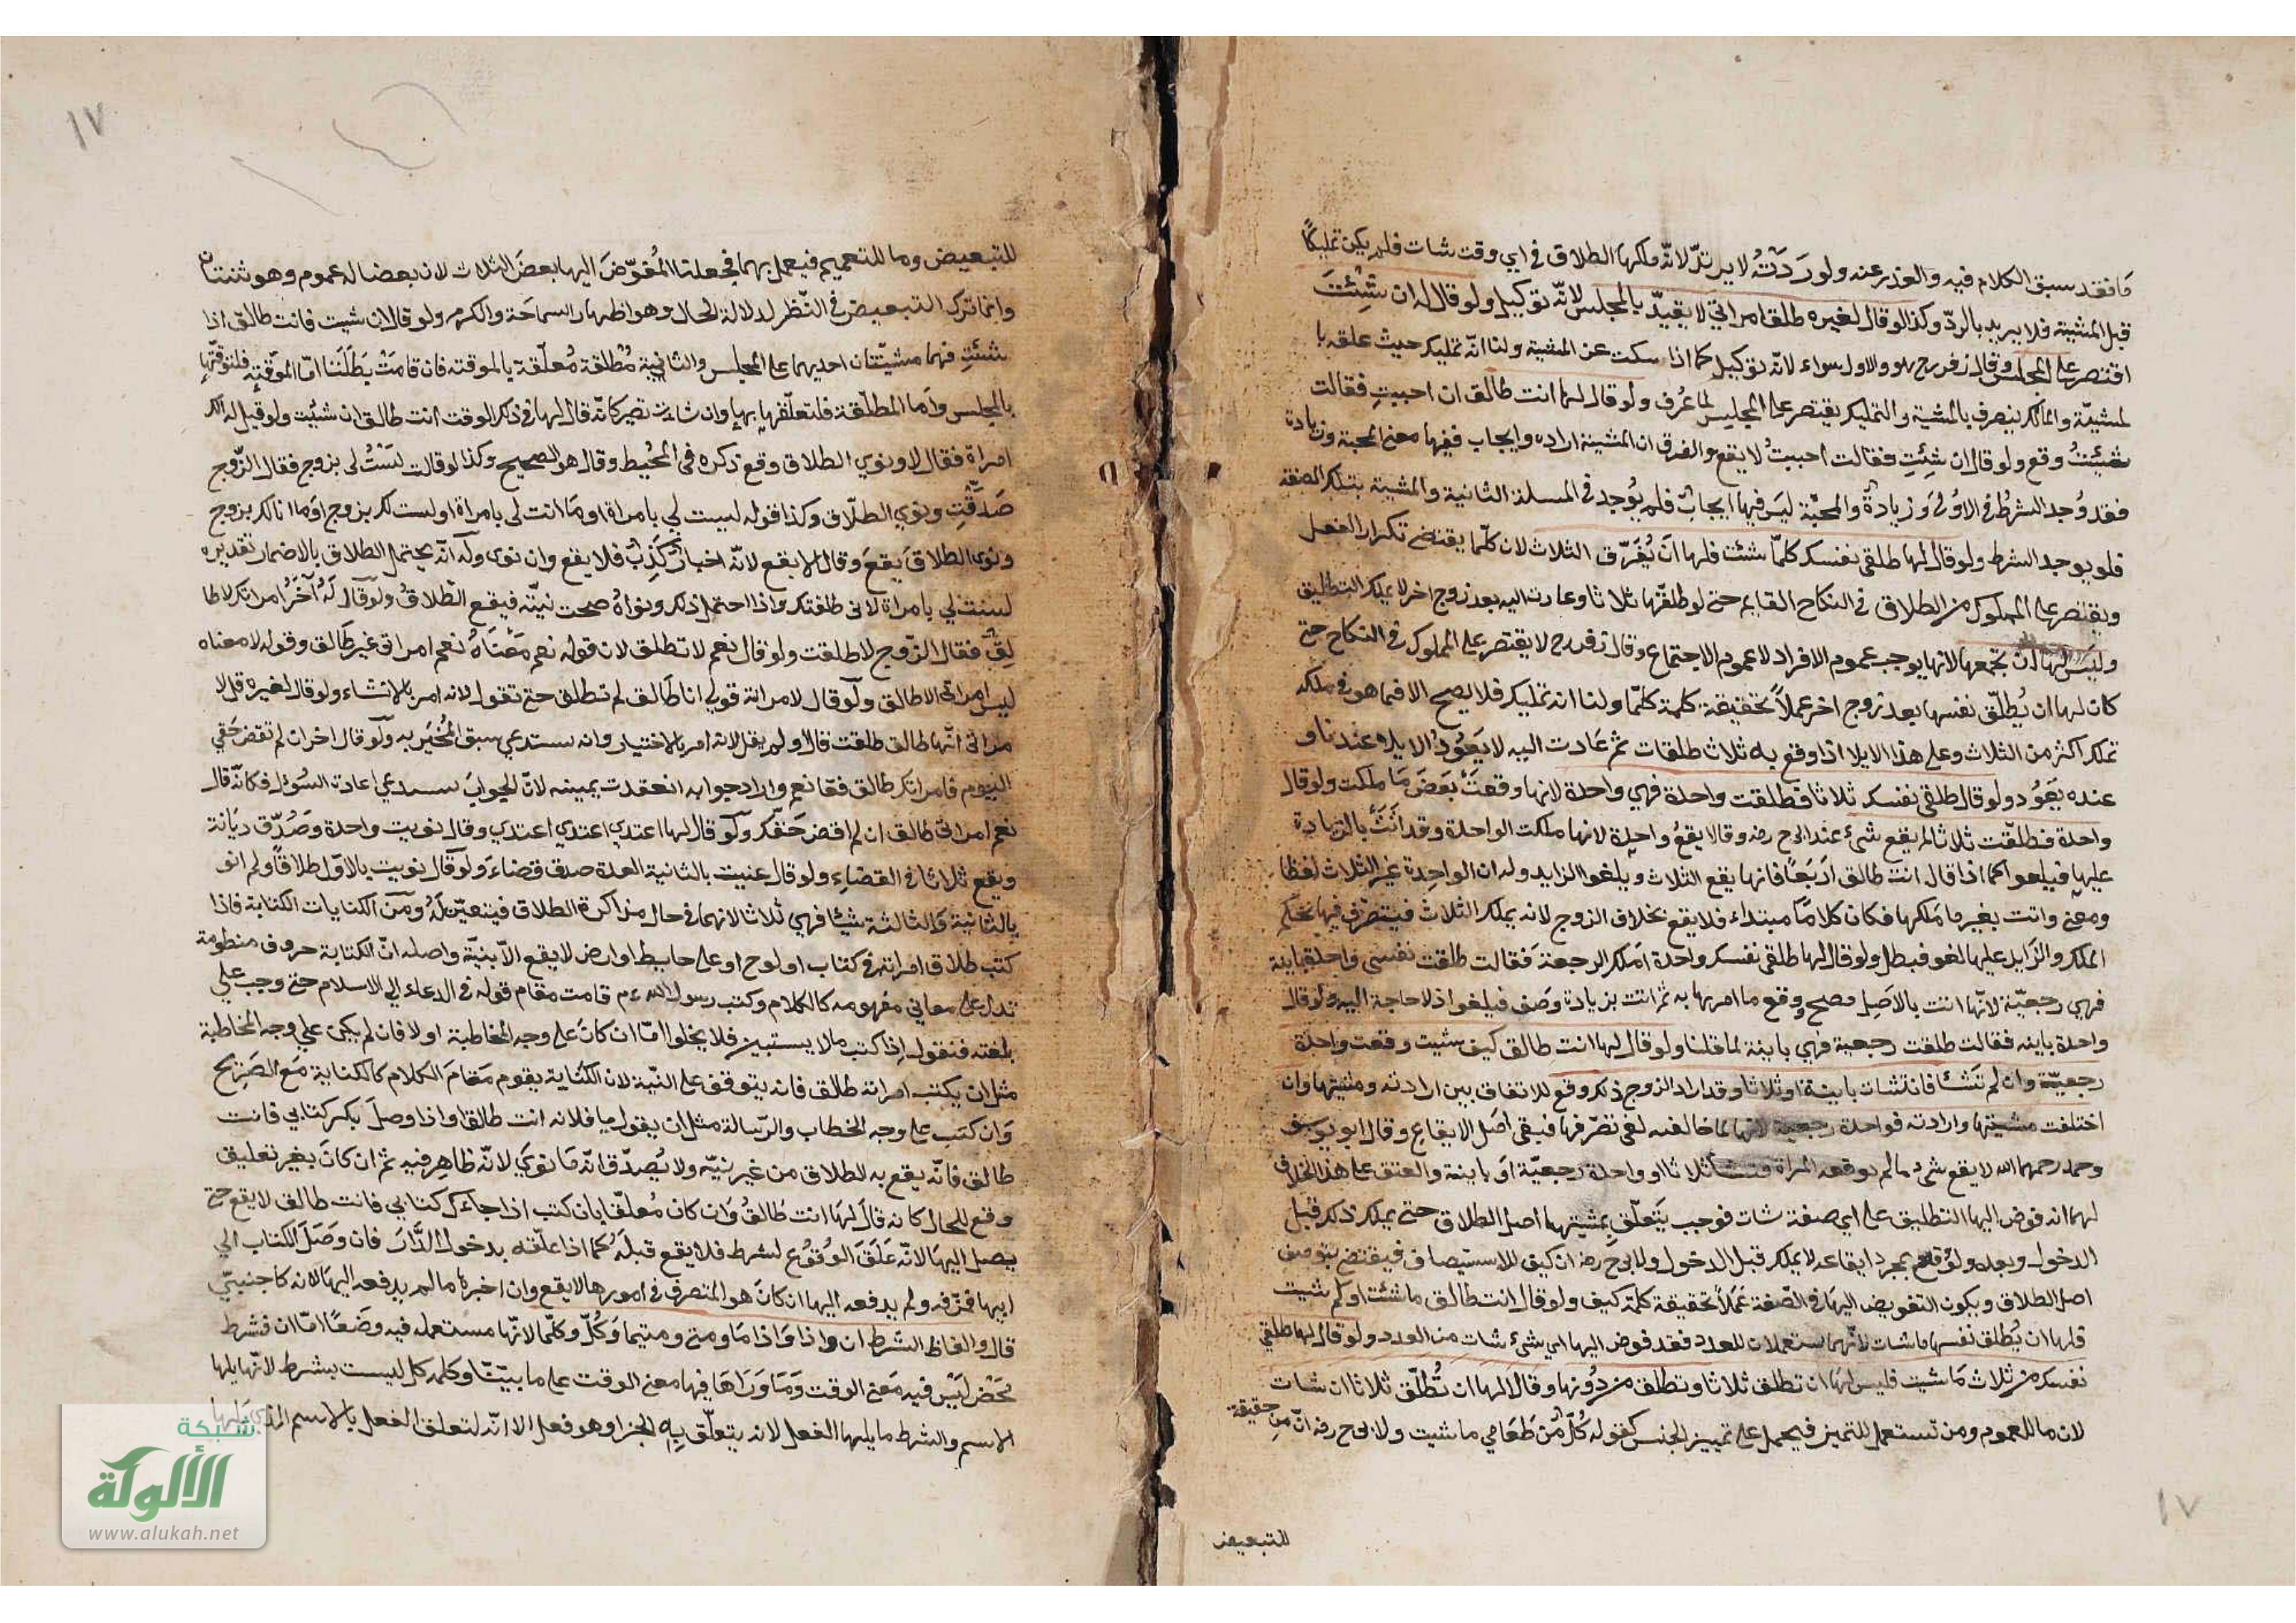 مَا فقد سبق الكلام فيه والعذر عنه ولو رَدَّتْهُ لا يرتدّ لانّه ملكها الطلاق في اي وقت شات فلم يكن تمليكًا
قبل المشية فلا يريد بالردّ وكذا لو قال لغيره طلق امراتي لا يقيدّ بالمجلس لانّه توكيل ولو قال له ان شِئتَ
اقتصر على المجلس وقال زفر رح هو والاول سواء لانّه توكيل كما اذا سكت عن المشية ولنا انّه تمليك حيث علقه با
لمشيّة والمالك يتصرف بالمشية والتمليك يقتصر على المجلس لما عُرف ولو قال لها انت طالق ان احببتِ فقالت
شئتُ وقع ولو قال ان شِئتِ فقالت احببتُ لا يقع والفرق ان المشية اراده وايجاب ففيها معنى المحبة وزيادة
فقد وُجد الشرطُ في الاوُلى وَزيادةٌ والمحبّة ليَس فيها ايجابٌ فلم يوُجد في المسلة الثانية والمشية بتلك الصفة
فلو يوجد الشرط ولو قال لها طلقي نفسك كلمّا شئت فلها اَن يُفَرّق الثلاث لان كلّما يقتضي تكرار الفعل
ويقتصر على المملوك من الطلاق في النكاح القايم حتى لو طلقّها ثلاثا وعادت اليه بعد زوج اخر لا يملك التطليق
وليَس لها ان تجمعها لانها يوجب عموم الافراد لا عموم الاجتماع وقال زفر رح لا يقتصر على المملوك في النكاح حتى
كان لها ان يُطلّق نفسها بعد زوج اخر عملاً بحقيقة كلمة كلمّا ولنا انه تمليك فلا يصح الا فيما هو في ملكه
تملك اكثر من الثلاث وعلى هذا الايلا اذا وقع به ثلاث طلقات ثم عَادت اليه لا يَعُودُ الايلا عندنا و
عنده يَعَوُد ولو قال طلقي نفسك ثلاثا فطلقت واحدة فهي واحدة لانها وقعتْ بَعَضَ مَا ملكت ولو قال
واحدة فطلّقت ثلاثا لم يقع شيء عند ابي ح رضه وقالا يقعُ واحدة لانها ملكت الواحدة وقد اَتَتْ بالزيادة
عليها فيلغوا كما اذا قال انت طالق اربَعًا فانها يقع الثلاث ويلغوا الزايد وله ان الواحدة غير الثلاث لفظا
ومعنى واتت بغير ما مَلكها فكان كلامًا مبتداء فلا يقع بخلاف الزوج لانه يملك الثلاث فيتصرف فيها بحكم
الملك والزّايد عليها لغو فبطل ولو قال لها طلقي نفسك واحدة اَملك الرجعة فقالت طلقت نفسي واحدة باينة
فهي رجعيّة لانّها اتت بالاصل فصح ووقع ما امرها به ثم اتت بزيادة وصَف فيلغوا اذ لا حاجة اليه ولو قال
واحدة باينه فقالت طلقت رجعية فهي باينة لما قلنا ولو قال لها انت طالق كيف شيت وقعت واحدة
رجعيّة وان لم تشَئا فان شات باينة او ثلاثا وقد اراد الزوج ذلك وقع للاتفاق بين ارادته ومشيتها وان
اختلفت مشيتها وارادته فواحدة رجعية لانها لما خالفته لغى تصّرفها فبقى اصَل الايقاع وقال ابو يوسف
ومحمد رحمهما الله لا يقع شيء ما لم توقعه المراة فتشا ثلاثا او واحدة رجعيّة اوَ باينة والعتق على هذا الخلاف
لهما انه فوض اليها التطليق على اي صفة شات فوجب يَتَعلّق بمشيتها اصل الطلاق حتى يملك ذلك قبل
الدخول وبعده ولو وقع بمجرد ايقاعه لا يملك قبل الدخول ولابي ح رضه ان كيف للاستيصاف فيقتضي بتوصف
اصل الطلاق ويكون التفويض اليها في الصّفة عَملاً بحقيقة كلمة كيف ولو قال انت طالق ما شئت او كم شيت
فلها ان يُطلق نفسها ما شات لانّهما يستعملان للعدد فقد فوض اليها اي شيء شات من العدد ولو قال لها طلقي
نفسك من ثلاث مَا شيت فليس لها ان تطلق ثلاثا وتطلق من دُونها وقالا لها ان تُطلّق ثلاثا ان شات
لان ما للعموم ومن تستعمل للتميز فيحمل على تمييز الجنس كقوله كُلّ مّن طَعَامي ما شيت ولابي ح رضه انّ من حقيقة
للتبعيض
١٧
١٧
للتبعيض وما للتعميم فيعمل بهما فجعلنا المُفوّضَ اليها بعضَ الثلاث لان بعضا له عموم وهو ثنتان
وانما ترك التبعيض في النّظر لدلالة الحال وهو اظهار السماحَة والكرم ولو قال ان شيت فانت طالق اذا
شئتِ فهما مشيّتان احديهما على المجلس والثانية مُطلقة مُعلّقة بالموقته فان قامَتْ بَطَلَتَا امّا الموّقتة فلتوقتّها
بالمجلس وامَا المطلّقة فلتعلّقها بها وان شاءت تصير كانّه قال لها في ذلك الوقت انت طالق ان شئِت ولو قيل له الك
امراة فقال لا ونوي الطلاق وقع ذكره في المُحيط وقال هو الصحيح وكذا لو قالت لسَتُ لي بزوج فقال الزّوج
صَدقّتِ ونوي الطلّاق وكذا قوله ليست لي بامراة او مَا انت لي بامراة او لست لك بزوج اومَا انا لك بزوج
ونوى الطلاقَ يقعَ وقالا لا يقع لانّه اخبار كَذِبٌ فلا يقع وان نوى وله انّه يحتمل الطلاق بالاضمار تقديره
لست لي بامراة لاني طلقتك واذا احتمل ذلك ونواهُ صحت نيتّه فيقع الطّلاقُ ولو قال لَهُ آخَرُ امراتك لا طا
لِقٌ فقال الزّوج لا طلقت ولو قال نعم لا تطلق لان قوله نعم مَعْناهُ نعم امراتي غير طَالق وقوله لا معناه
ليس امراتي الا طالق ولو قال لامراته قولي انا طَالق لم تطلق حتى تقول لانه امر بالانشاء ولو قال لغيره قل لا
مراتي انّها طالق طلقت قال او لم يقل لانه امر بالاختيار وانه يستدعي سبق المُخبَر به ولو قال اخر ان لم تقض حَقي
اليوم فامراتك طالق فقا نعم واراد جوابه انعقدت يمينه لانّ الجوابَ يستدعي اعادة السُؤل فكانّه قال
نعم امراتي طالق ان لم اقض حَقّك ولو قال لها اعتدي اعتدي اعتدي وقال نويت واحدة وصُدّق ديَانة
ويقع ثلاثا في القضاءِ ولو قال عنيت بالثانية العدة صدق قضاءَ ولو قال نويت بالاوّل طلاقًا ولم انو
بالثانية والثالثة شيئا فهي ثلاثا لانهما في حال مذاكرة الطلاق فيتعيّن لَهُ ومن الكنايات الكتابة فاذا
كتب طلاق امراته في كتاب او لوح او على حايط او ارض لا يقع الاّ بنيّة واصله انّ الكتابة حروف منظومة
تدل على معاني مفهومه كالكلام وكتب رسول الله ءم قامت مقام قوله في الدعاء الي الاسلام حتى وجب علي
بلغته فنقول اذا كتب ما لا يستبين فلا يخلوا امّا ان كانَ على وجه المخاطبة او لا فان لم يكن علي وجه المخاطبة
مثل ان يكتب امراته طالق فانه يتوقف على النّية لان الكتاية يقوم مَقامَ الكلام كالكناية مَع الصَريح
وَان كتب على وجه الخطاب والرّسالة مثل ان يقول ميا فلانه انت طالق او اذا وصلَ بكر كتابي فانت
طالق فانّه يقع به الطلاق من غير نيّه ولا يُصدّق انّه مَا نوَي لانّه ظاهِر فيه ثم ان كانَ بغير تعليق
وقع للحال كانه قالَ لها انت طالقُ وَان كان مُعلقّا بان كتب اذا جاءكِ كتابي فانت طالق لا يقع حتى
يصل اليها لانّه عَلقَ الوُقوُع لشرط فلا يقع قبلَهُ كما اذا علّقه بدخول الدّارَ فان وَصَلَ الكتاب الي
ابيها فمزّقه ولم يدفعه اليها ان كانَ هو المتصرف في امورها لا يقع وان اخبرها ما لم يدفعه اليها لانه كاجنبيّ
قال والفاظ الشرط ان واذا وَاذا مَا ومتى ومتيما وَكُلّ وكلمّا لانّها مستعمله فيه وضَعًا امّا ان فشرط
محَض ليَس فيه مَعَنى الوقت وَمَا وَرَاهَا فيها معنى الوقت على ما بيّنّا وكلمه كل ليست بشرط لانّها يليها
الاسم والشرط ما يليها الفعل لانه يتعلّق بِه الجزا وهو فعل الا انّه لتعلق الفعل بالاسم الذي يليها
شبكة
الألوكة
www.alukah.net